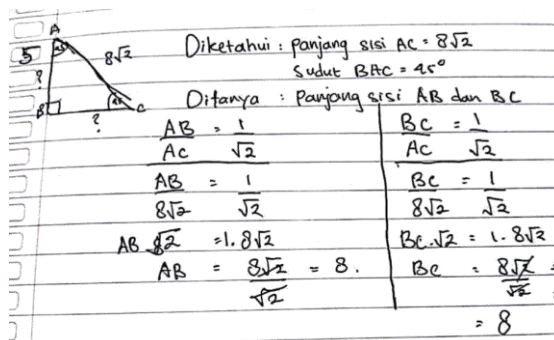 5
A
45
8√2
?
B
45
C
?
Diketahui : panjang sisi AC = 8√2
Sudut BAC = 45°
Ditanya : Panjang sisi AB dan BC
AB/AC = 1/√2
AB/8√2 = 1/√2
AB √2 = 1.8√2
AB = 8√2/√2 = 8.
BC/AC = 1/√2
BC/8√2 = 1/√2
BC.√2 = 1.8√2
BC = 8√2/√2 =
= 8